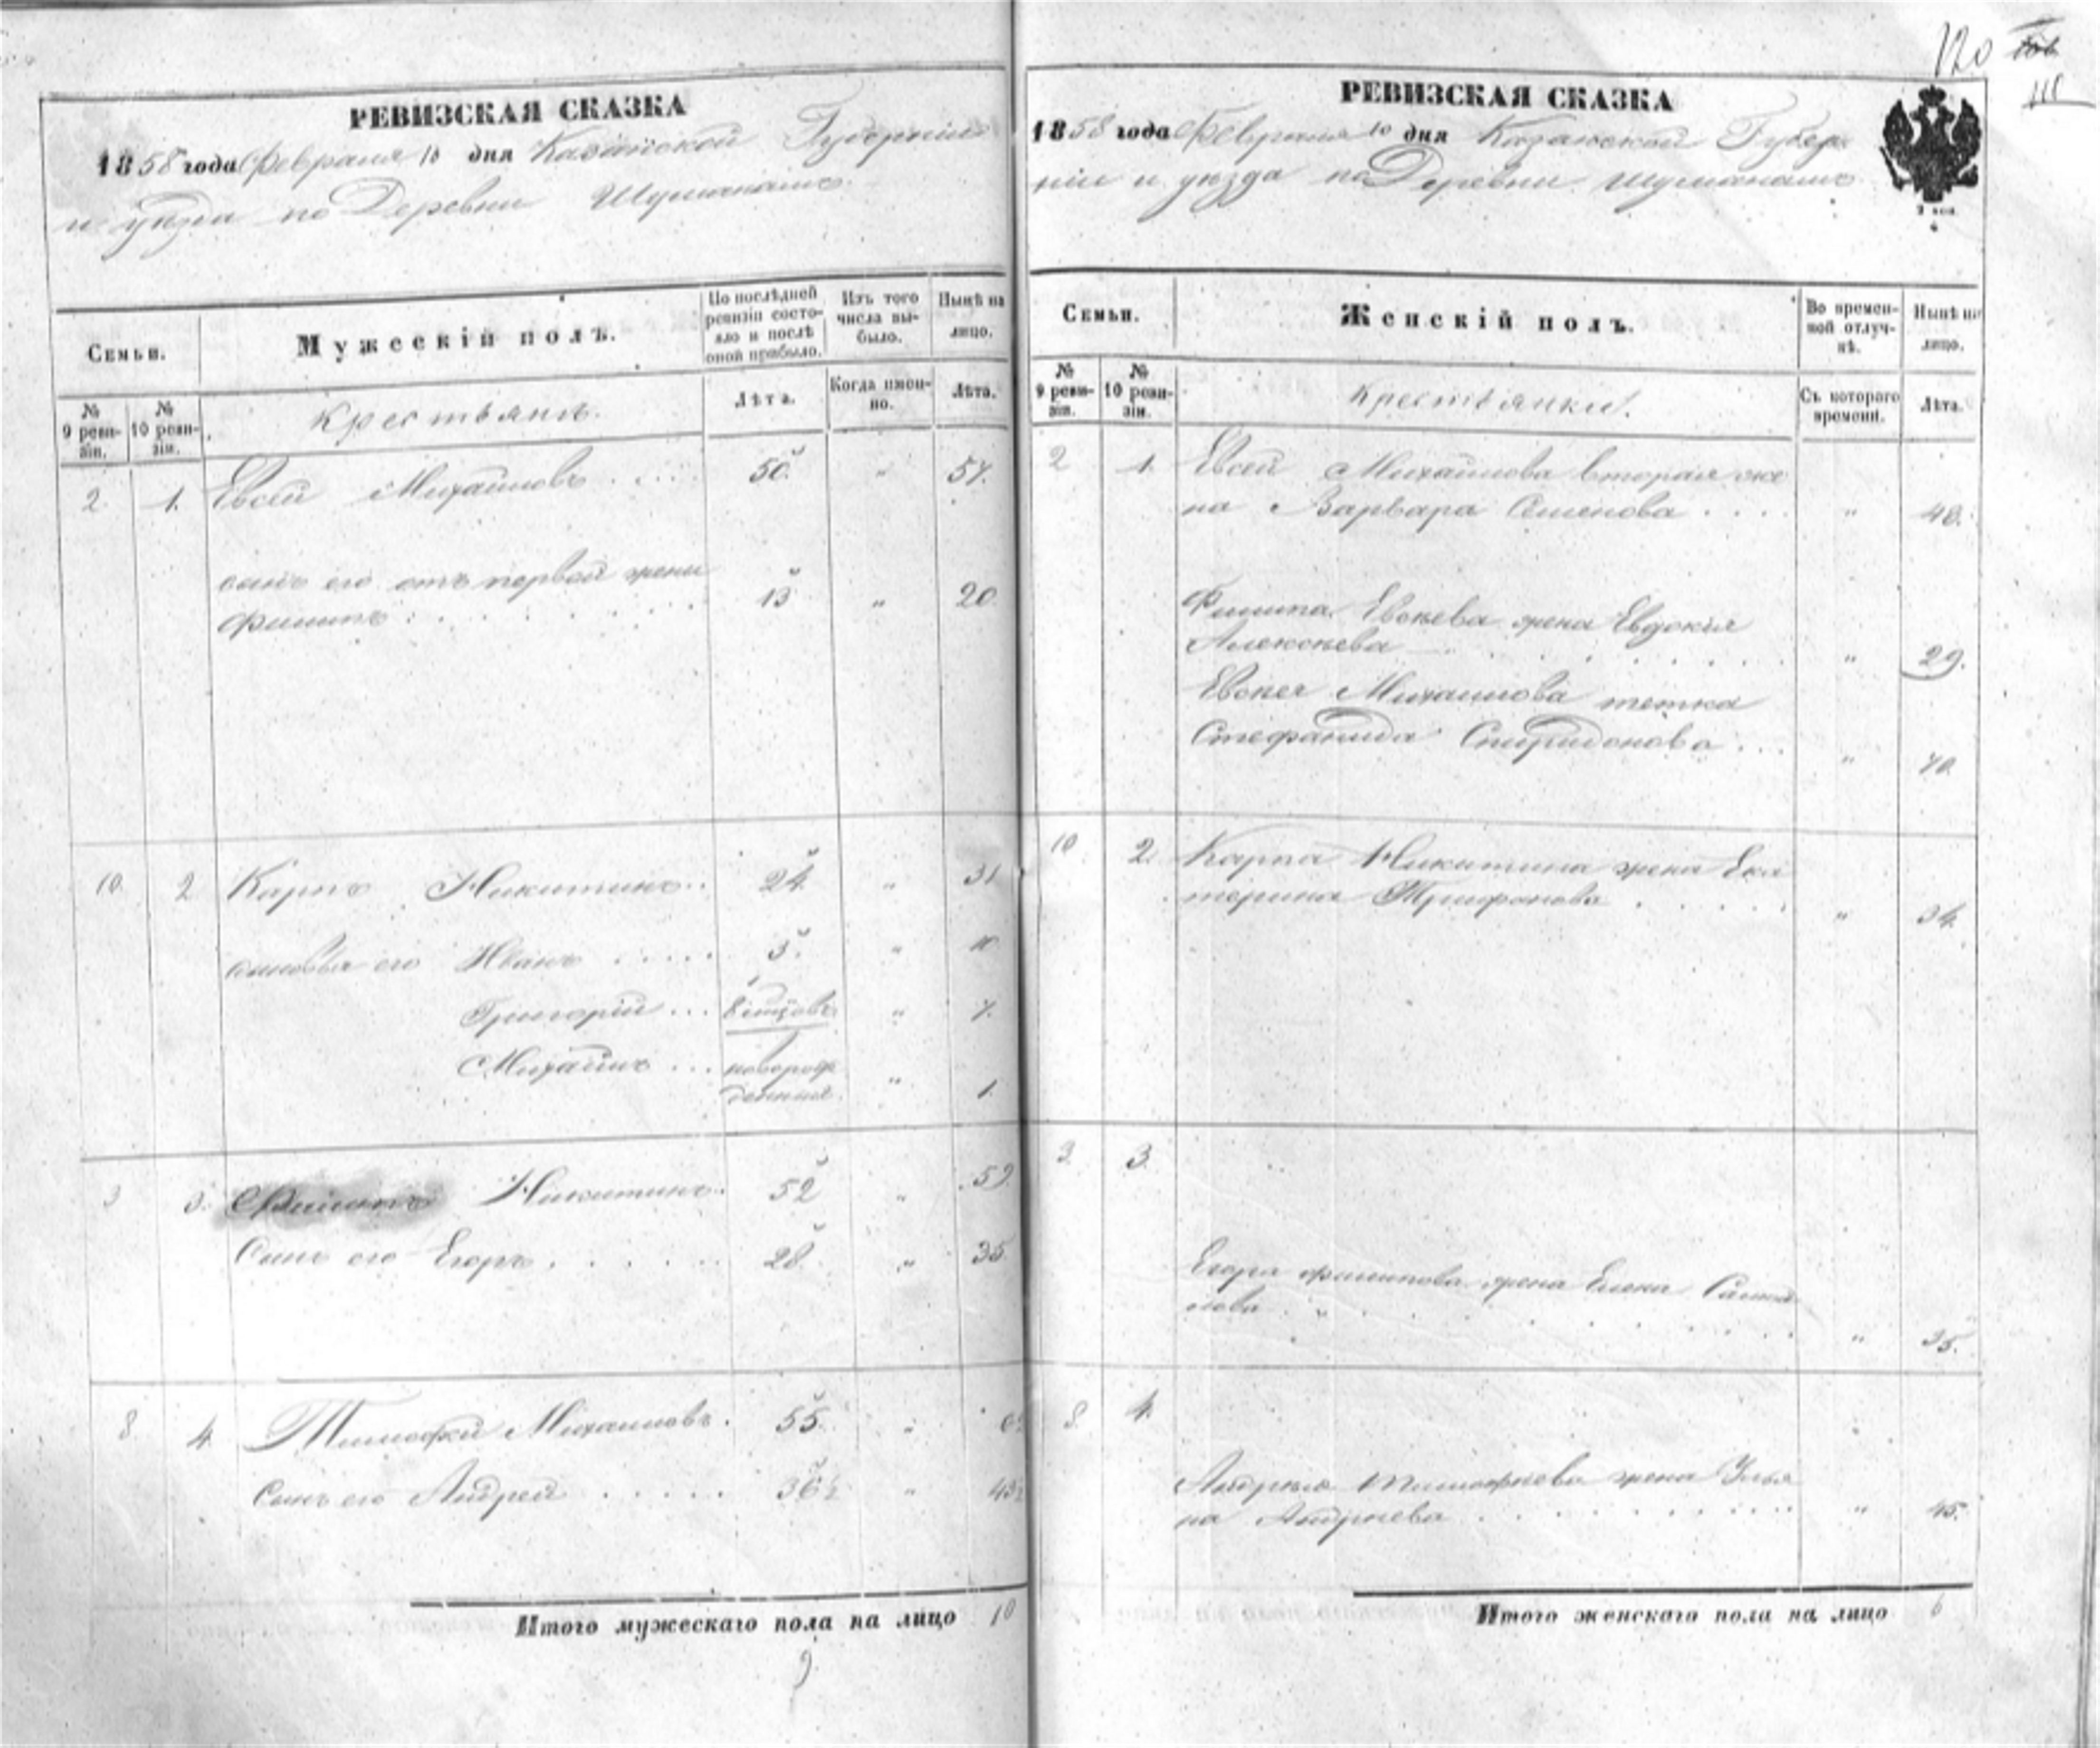 120
111
РЕВИЗСКАЯ СКАЗКА
1858 года Февраля 10 дня Казанской Губерніи
и уѣзда по Деревни Шуманамъ
Семьи.
Мужескій полъ.
По послѣдней ревизіи состояло и послѣ оной прибыло.
Изъ того числа выбыло.
Нынѣ на лицо.
№ 9 ревизіи.
№ 10 ревизіи.
Крестьянъ.
Лѣта.
Когда именно.
Лѣта.
2 1. Евсей Михайловъ 50 " 57.
сынъ его отъ первой жены
Филипъ 13 " 20
10 2 Карпъ Никитинъ 24 " 31
сыновья его Иванъ 3 " 10
Григорій " 7.
Михайлъ новорож
денный " 1
3 3. Филипъ Никитинъ 52 " 59
Сынъ его Егоръ 28 " 35
8 4 Тимофей Михаиловъ 55 "
Сынъ его Андрей 36½ " 43½
Итого мужескаго пола на лицо 10
9
РЕВИЗСКАЯ СКАЗКА
1858 года Февраля 10 дня Казанской Губер
ніи и уѣзда по Деревни Шуманамъ
Семьи.
Женскій полъ.
Во временной отлучкѣ.
Нынѣ на лицо.
№ 9 ревизіи.
№ 10 ревизіи.
Крестьянки.
Съ котораго времени.
Лѣта.
2 1. Евсея Михайлова вторая же
на Варвара Семенова " 48.
Филипа Евсѣева жена Евдокія
Алексѣева " 29.
Евсея Михаилова тетка
Стефанида Спиридонова " 70
10 2. Карпа Никитина жена Ека
терина Трифонова " 34.
3. 3.
Егора Филипова жена Елена Самой
лова " 35.
8. 4.
Андрея Тимофѣева жена Улья
на Андрѣева " 45.
Итого женскаго пола на лицо 6